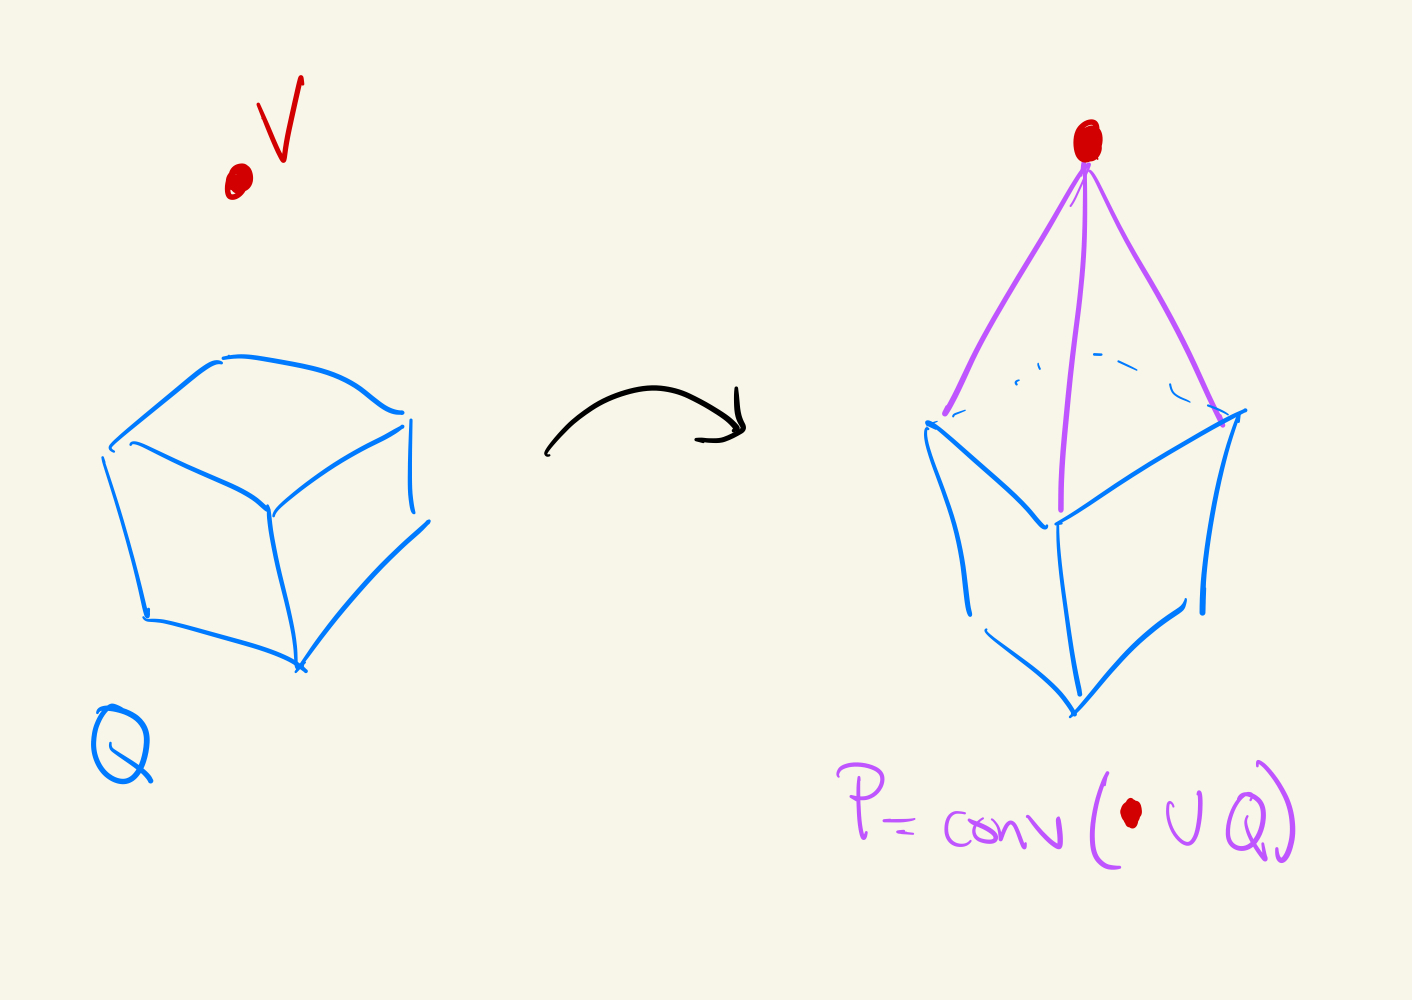 V
Q
P = conv (• ∪ Q)